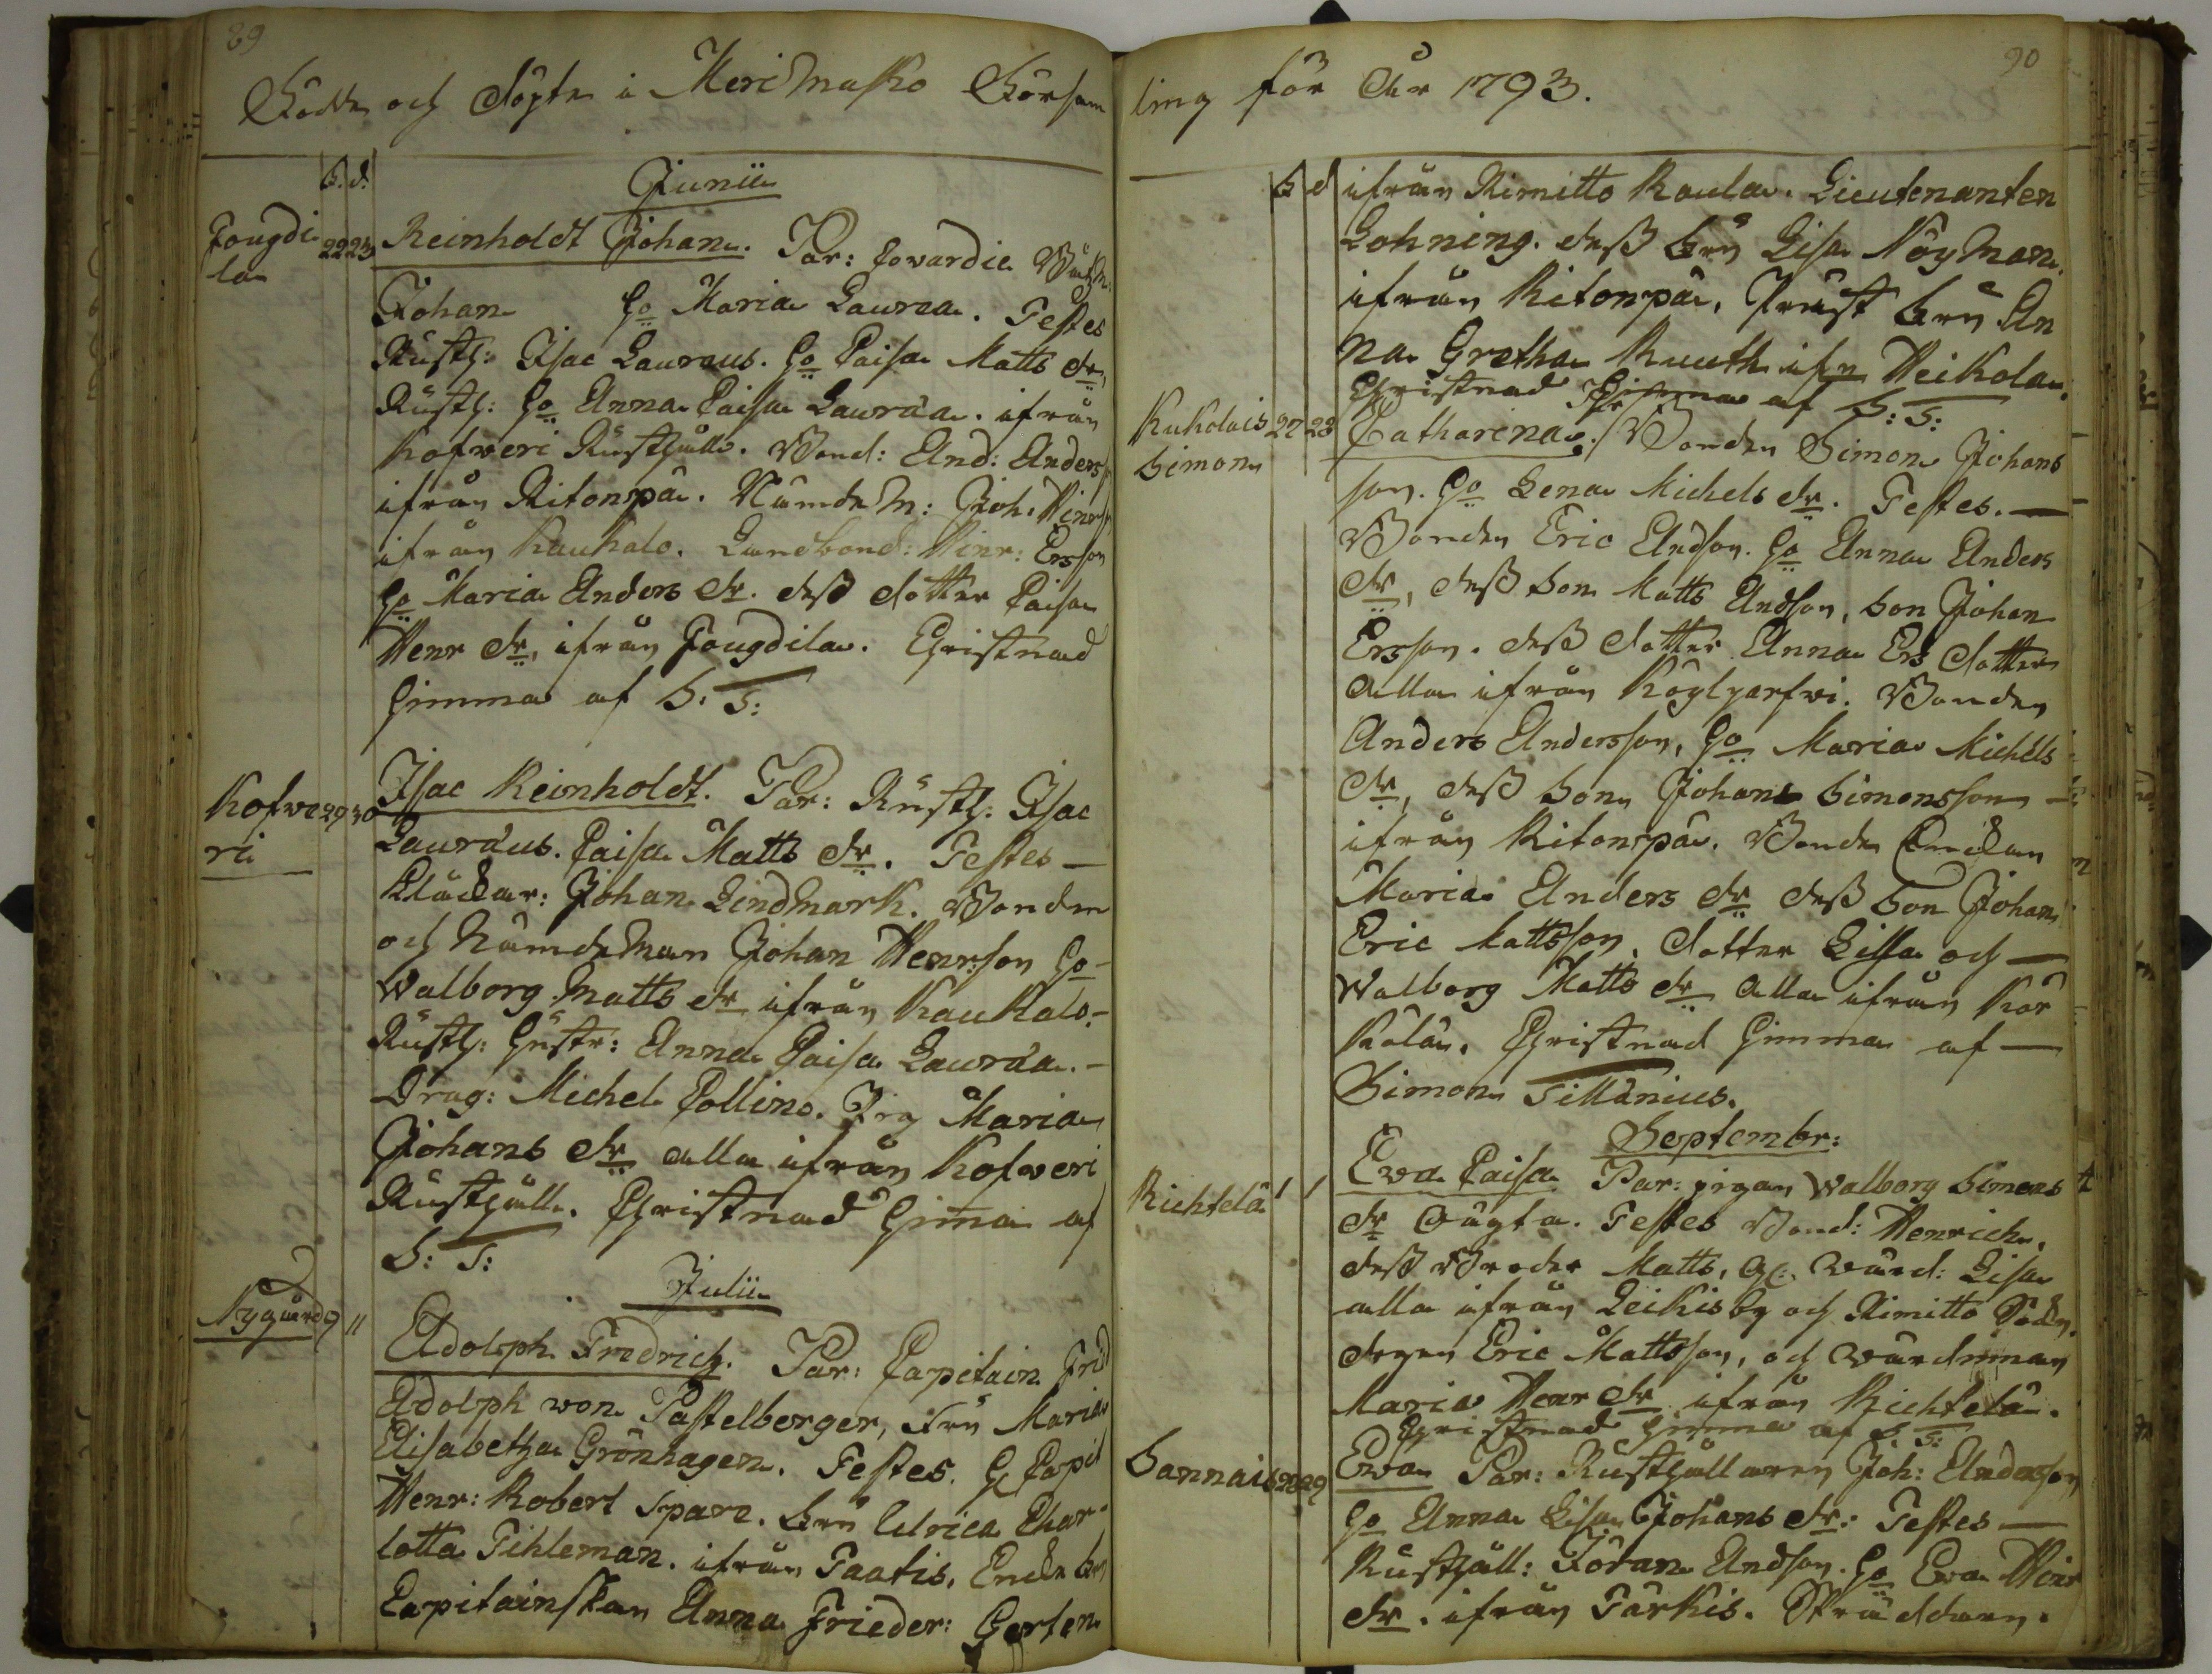 89
Födde och Döpte i Merimasko Försam
f. d.
Junii
Fougdi
la
22 23 Reinholdt Johan. Par: Covardie
Johan ho Maria Laurea. Testes
Rusth: Isac Lauraus. ho Caisa Matts dr.
Rusth: ho Anna Caisa Lauræa. ifrån
Kofveri Rusthålls. Bond: And: Anders
ifrån Ritonpä. Nämdem: Joh: Hinr
ifrån Kaukalo. Landbond: Hinr: Ersson
ho Maria Anders dr. dess dotter Caisa
Henr dr, ifrån Fougdila. Christnad
hemma af S. T:
Kofve
ri
29 30 Isac Reinholdt. Par: Rusth: Isac
Lauræus. Caisa Matts dr. Testes —
Klåckar: Johan Lindmark. Bonden
och Nämdeman Johan Henrson ho
Walborg Matts dr ifrån Kaukalo.
Rusth: hustr: Anna Caisa Lauræa. —
Drag: Michel Collino. Pig Maria
Johans dr alla ifrån Kofveri
Rusthåll. Christnad hemma af
S: T:
Julii
Nygård 9 11
Adolph Fredrich. Par: Capitain Frid
Adolph von Pastelberger, Fru Maria
Elisabetha Grönhagen. Testes. H Capit
Henr: Robert Spare. Fru Ulrica Char-
lotta Tihleman. ifrån Taatis, Encke fru
Capitainskan Anna Frieder: Gerten
90
ling för Åhr 1793.
f d
ifrån Rimitto Kaula. Lieutenanten
Lohning. dess fru Lisa Nöyman.
ifrån Ritonpä, Prust fru An
na Gretha Ruuth ifn Heikola.
Christnad hemma af S: T:
Kukolais
Simon
27 28 Catharina. Bonden Simon Johans
son. ho Lena Michels dr. Testes. —
Bonden Eric Andson. ho Anna Anders
dr, dess son Matts Andson, son Johan
Ersson. dess dotter Anna Ers dotter
alla ifrån Köylyparfvi. Bonden
Anders Andersson, ho Maria Michels
dr, dess son Johan Simonsson —
ifrån Ritonpä. Bonde Enckan
Maria Anders dr dess son Johan
Eric Mattsson, dotter Lissa och —
Walborg Matts dr alla ifrån Kår
kola. Christnad hemma af —
Simon Tillænius.
Septembr:
Richtelä 1 1
Eva Caisa Par: pigan Walborg Simons
dr oägta. Testes Bond: Henrich.
dess Broder Matts, Gl. wärd: Lisa
alla ifrån Leikis by och Rimitto Sockn.
drgn Eric Mattsson, och wärdinnan
Maria Henr dr ifrån Richtelä.
Christnad hemma af S. T:
Sannais 28 29 Eva Par: Rusthållaren Joh: Andersson
ho Anna Lisa Johans dr: Testes —
Rusthåll: Jöran Andson. ho Eva Hinr
dr. ifrån Tarkis. Skräddaren.